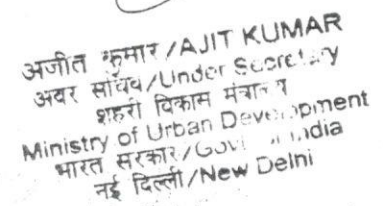 अजीत कुमार /AJIT KUMAR
अवर सचिव/Under Secretary
शहरी विकास मंत्रालय
Ministry of Urban Development
भारत सरकार/Govt of India
नई दिल्ली/New Delhi